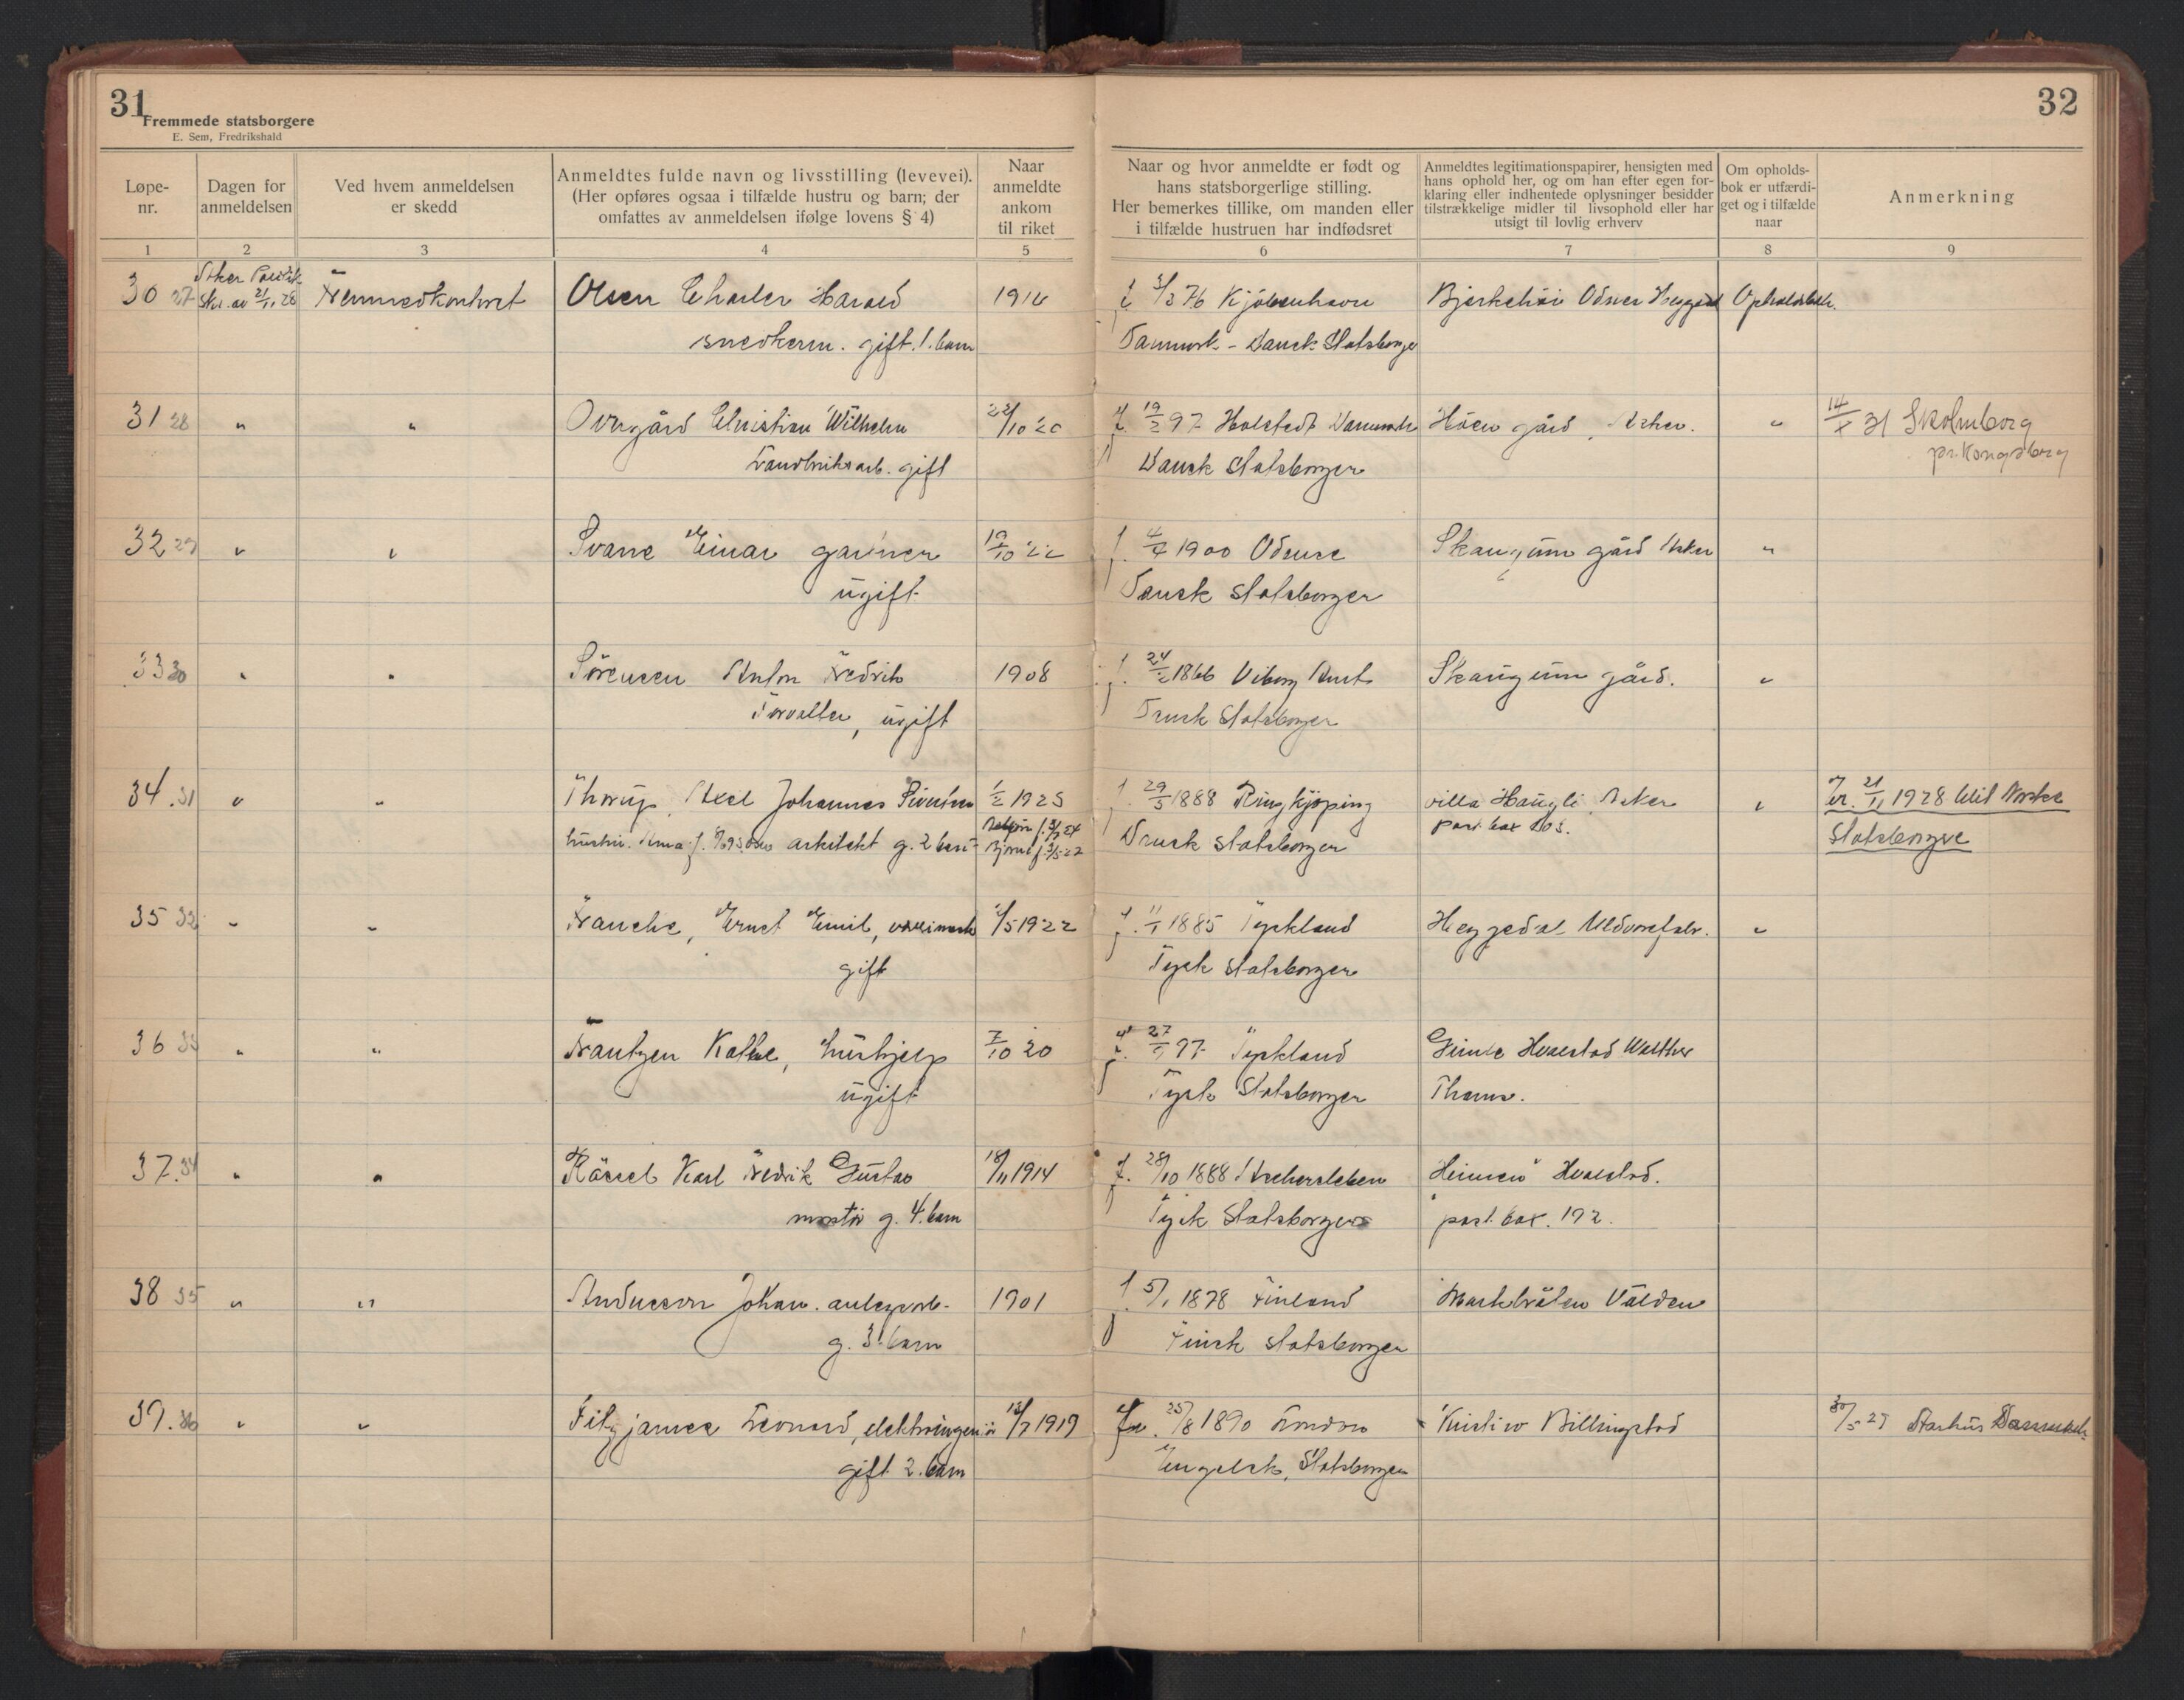 31
Fremmede statsborgere
E. Sem, Fredrikshald
32
Løpe-
nr.
Dagen for
anmeldelsen
Ved hvem anmeldelsen
er skedd
Anmeldtes fulde navn og livsstilling (levevei).
(Her opføres ogsaa i tilfælde hustru og barn; der
omfattes av anmeldelsen ifølge lovens § 4)
Naar
anmeldte
ankom
til riket
Naar og hvor anmeldte er født og
hans statsborgerlige stilling.
Her bemerkes tillike, om manden eller
i tilfælde hustruen har indfødsret
Anmeldtes legitimationspapirer, hensigten med
hans ophold her, og om han efter egen for-
klaring eller indhentede oplysninger besidder
tilstrækkelige midler til livsophold eller har
utsigt til lovlig erhverv
Om opholds-
bok er utfærdi-
get og i tilfælde
naar
Anmerkning
1 2 3 4 5 6 7 8 9
30 27 skr. av 21/1 28 Fremmedkontoret Olsen Charles Harald 1916 Kjøbenhavn Opholdsbok.
snedkerm. gift. 1. barn Danmark - Dansk Statsborger
31 28 " " Overgård Christian Wilhelm f. 19/2 97 Holstedt Danmark Höen gård, Asker. " 14/X 31 Skolmborg
Landbruksarb. gift Dansk statsborger pr. Kongsberg
32 29 " " Svane Einar gartner 19/10 22 1900 Odense Skaugum gård Asker "
ugift Dansk statsborger
33 30 " " Sörensen Anton Fredrik 1908 f. 1866 Viborg Amt Skaugum gård. "
Forvalter, ugift Dansk Statsborger
34. 31 " " Thorup, Axel Johannes 1/2 1925 f. 29/5 1888 Ringkjøping villa Haugli Asker " 21/11 1928 blit Norske
hustru arkitekt g. 2 barn Dansk statsborger post box statsborgere
35 32 " " Franche, Ernst Emil, /5 1922 f. 11/1 1885 Tyskland Heggedal Uldvarefabr. "
gift Tysk statsborger
36 33 " " Frantzen Kathe, hushjelp 7/10 20 f. 27/ 97 Tyskland Hvalstad Walther
ugift Tysk Statsborger Thams.
37. 34 " " Rössel Karl Fredrik Gustav 18/11 1914 f. 28/10 1888 Aschersleben Hvalstad.
g. 4. barn Tysk Statsborger post box. 192.
38 35 " " Andersson Johan. 1901 f. 5/1 1878 Finland
g. 3. barn Finsk statsborger
39. 36 " " Fitzjames Leonard, elektroingeniör 13/7 1919 25/8 1890 London Billingstad 30/5 29 Aarhus Danmark
gift 2. barn Engelsk, Statsborger